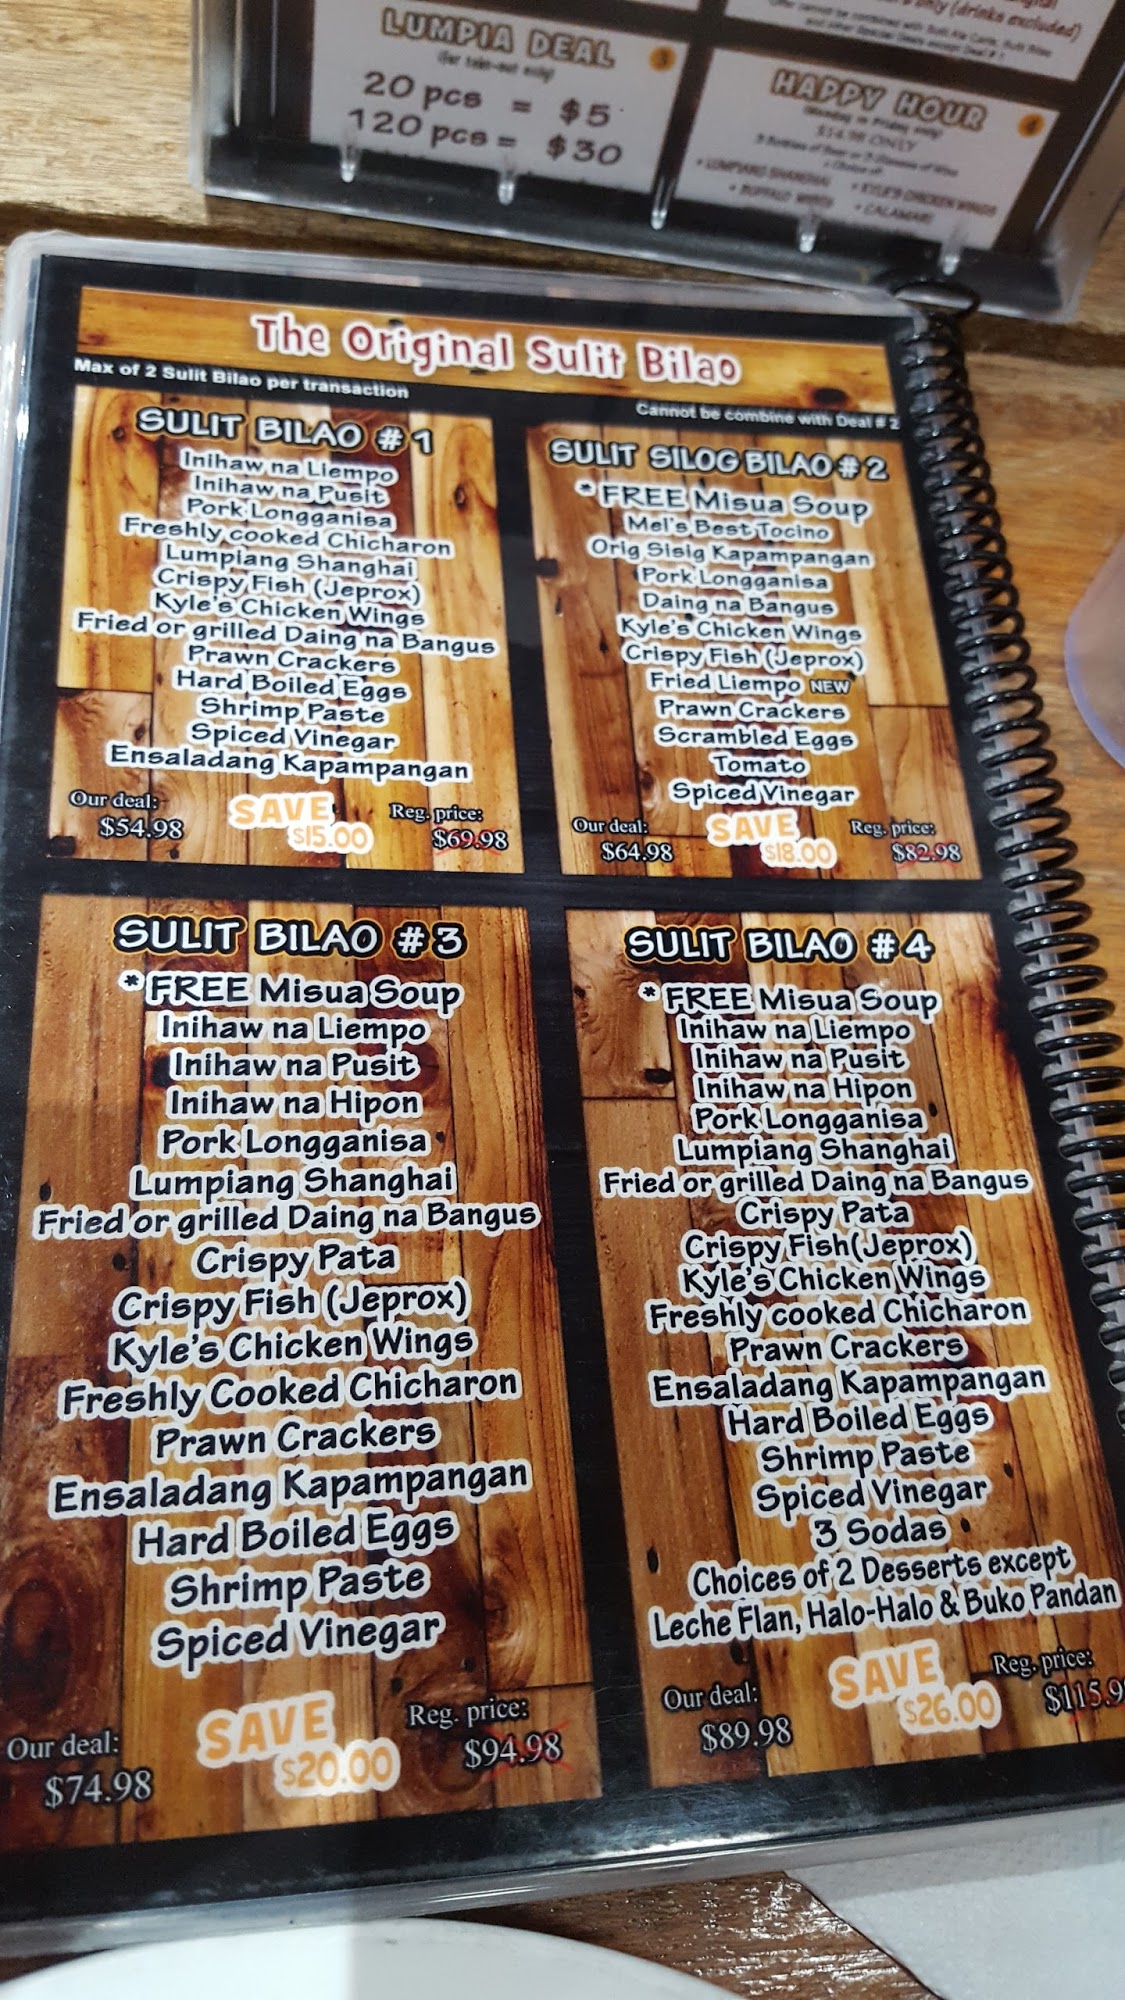 only (drinks excluded)
LUMPIA DEAL
3
(for take-out only)
20 pcs = $5
120 pcs = $30
HAPPY HOUR
4
(Monday to Friday only)
$14.98 ONLY
3 Bottles of Beer or 3 Glasses of Wine
• LUMPIANG SHANGHAI • KYLE'S CHICKEN WINGS
• BUFFALO WINGS • CALAMARI
The Original Sulit Bilao
Max of 2 Sulit Bilao per transaction
Cannot be combine with Deal # 2
SULIT BILAO # 1
Inihaw na Liempo
Inihaw na Pusit
Pork Longganisa
Freshly cooked Chicharon
Lumpiang Shanghai
Crispy Fish (Jeprox)
Kyle's Chicken Wings
Fried or grilled Daing na Bangus
Prawn Crackers
Hard Boiled Eggs
Shrimp Paste
Spiced Vinegar
Ensaladang Kapampangan
Our deal:
$54.98
SAVE
$15.00
Reg. price:
$69.98
SULIT SILOG BILAO # 2
* FREE Misua Soup
Mel's Best Tocino
Orig Sisig Kapampangan
Pork Longganisa
Daing na Bangus
Kyle's Chicken Wings
Crispy Fish (Jeprox)
Fried Liempo NEW
Prawn Crackers
Scrambled Eggs
Tomato
Spiced Vinegar
Our deal:
$64.98
SAVE
$18.00
Reg. price:
$82.98
SULIT BILAO # 3
* FREE Misua Soup
Inihaw na Liempo
Inihaw na Pusit
Inihaw na Hipon
Pork Longganisa
Lumpiang Shanghai
Fried or grilled Daing na Bangus
Crispy Pata
Crispy Fish (Jeprox)
Kyle's Chicken Wings
Freshly Cooked Chicharon
Prawn Crackers
Ensaladang Kapampangan
Hard Boiled Eggs
Shrimp Paste
Spiced Vinegar
Our deal:
$74.98
SAVE
$20.00
Reg. price:
$94.98
SULIT BILAO # 4
* FREE Misua Soup
Inihaw na Liempo
Inihaw na Pusit
Inihaw na Hipon
Pork Longganisa
Lumpiang Shanghai
Fried or grilled Daing na Bangus
Crispy Pata
Crispy Fish(Jeprox)
Kyle's Chicken Wings
Freshly cooked Chicharon
Prawn Crackers
Ensaladang Kapampangan
Hard Boiled Eggs
Shrimp Paste
Spiced Vinegar
3 Sodas
Choices of 2 Desserts except
Leche Flan, Halo-Halo & Buko Pandan
Our deal:
$89.98
SAVE
$26.00
Reg. price:
$115.9